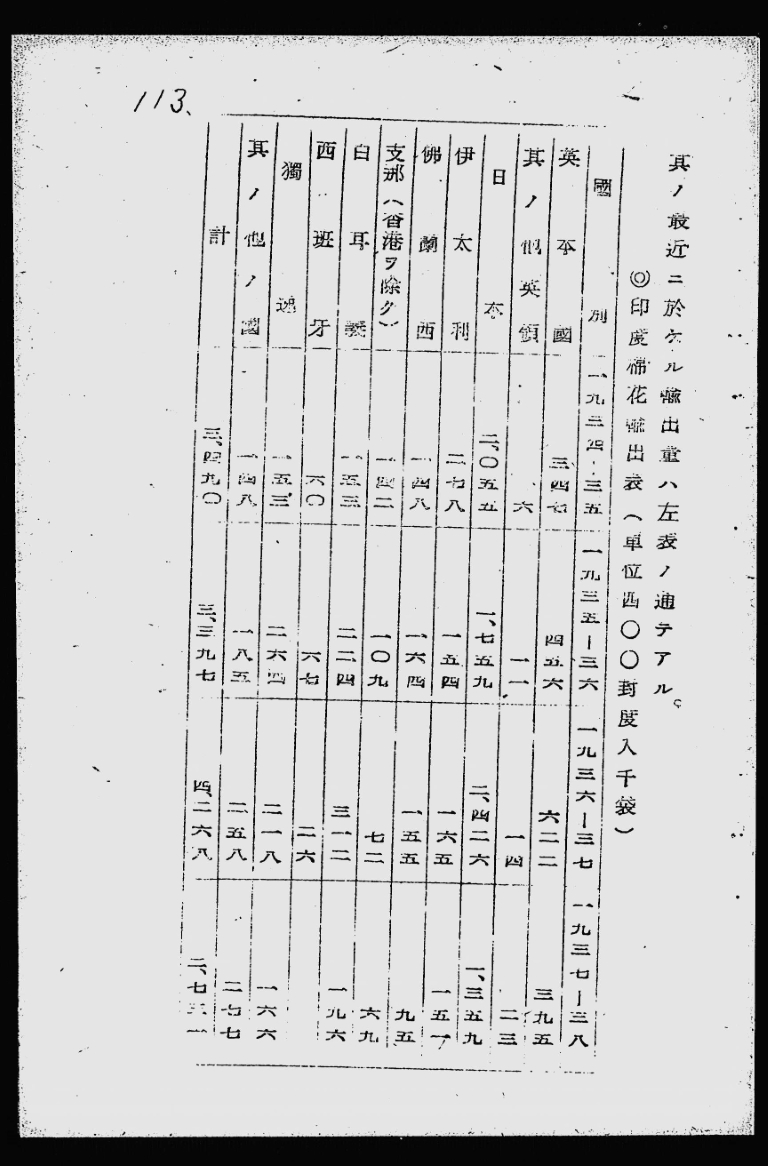 113.
其ノ最近ニ於ケル輸出量ハ左表ノ通テアル。
◎印度棉花輸出表(單位四〇〇封度入千袋)
國別 一九三四-三五 一九三五-三六 一九三六-三七 一九三七-三八
英本國 三四七 四五六 六二二 三九五
其ノ他英領 六 一一 一四 二三
日本 二、〇五五 一、七五九 二、四二六 一、三五九
伊太利 二七八 一五四 一六五 一五一
佛蘭西 一四八 一六四 一五五 九五
支那(香港ヲ除ク) 一四二 一〇九 七二 六九
白耳義 一五三 二二四 三一二 一九六
西班牙 六〇 六七 二六
獨逸 一五三 二六四 二一八 一六六
其ノ他ノ國 一四八 一八五 二五八 二七七
計 三、四九〇 三、三九七 四、二六八 二、七三一